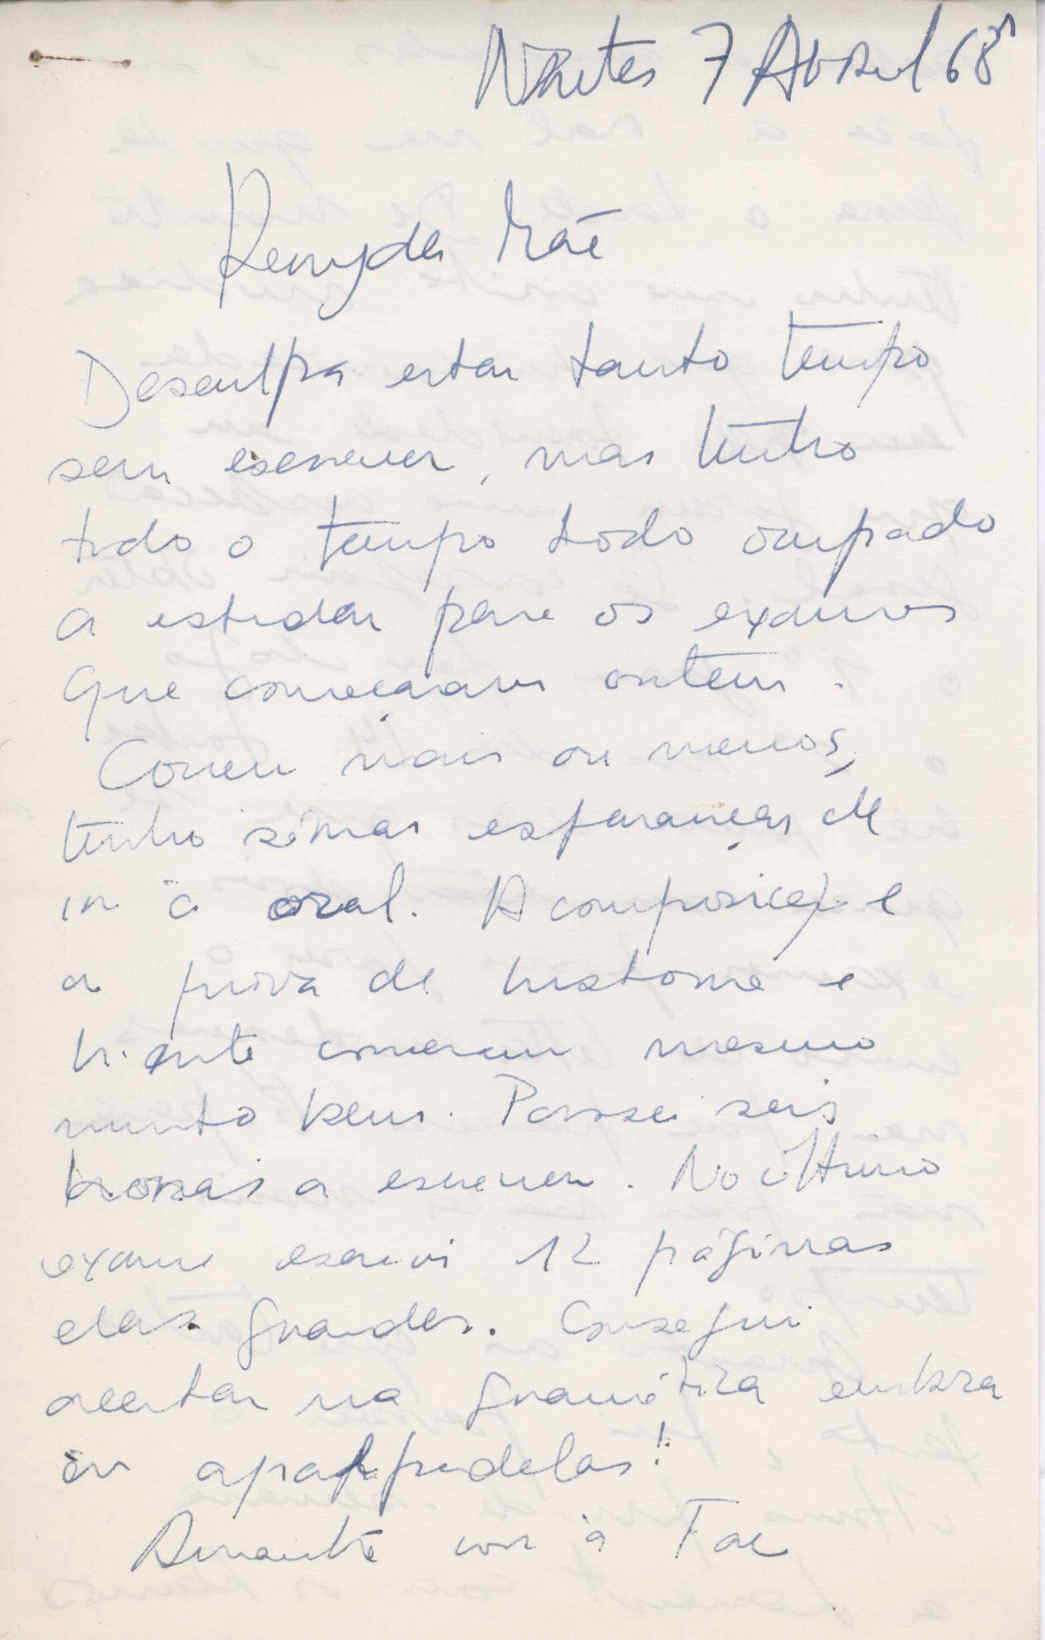 Nantes 7 Abril 68
Querida Mãe
Desculpa estar tanto tempo
sem escrever, mas tenho
tido o tempo todo ocupado
a estudar para os exames
que começaram ontem.
Correu mais ou menos,
tenho esperanças de
ir à oral. A composição e
a prova de historia e
correram mesmo
muito bem. Passei seis
horas a escrever. No último
exame escrevi 12 páginas
das grandes. Consegui
acertar na gramática embora
apalpadelas!
Amanhã vou à Fac